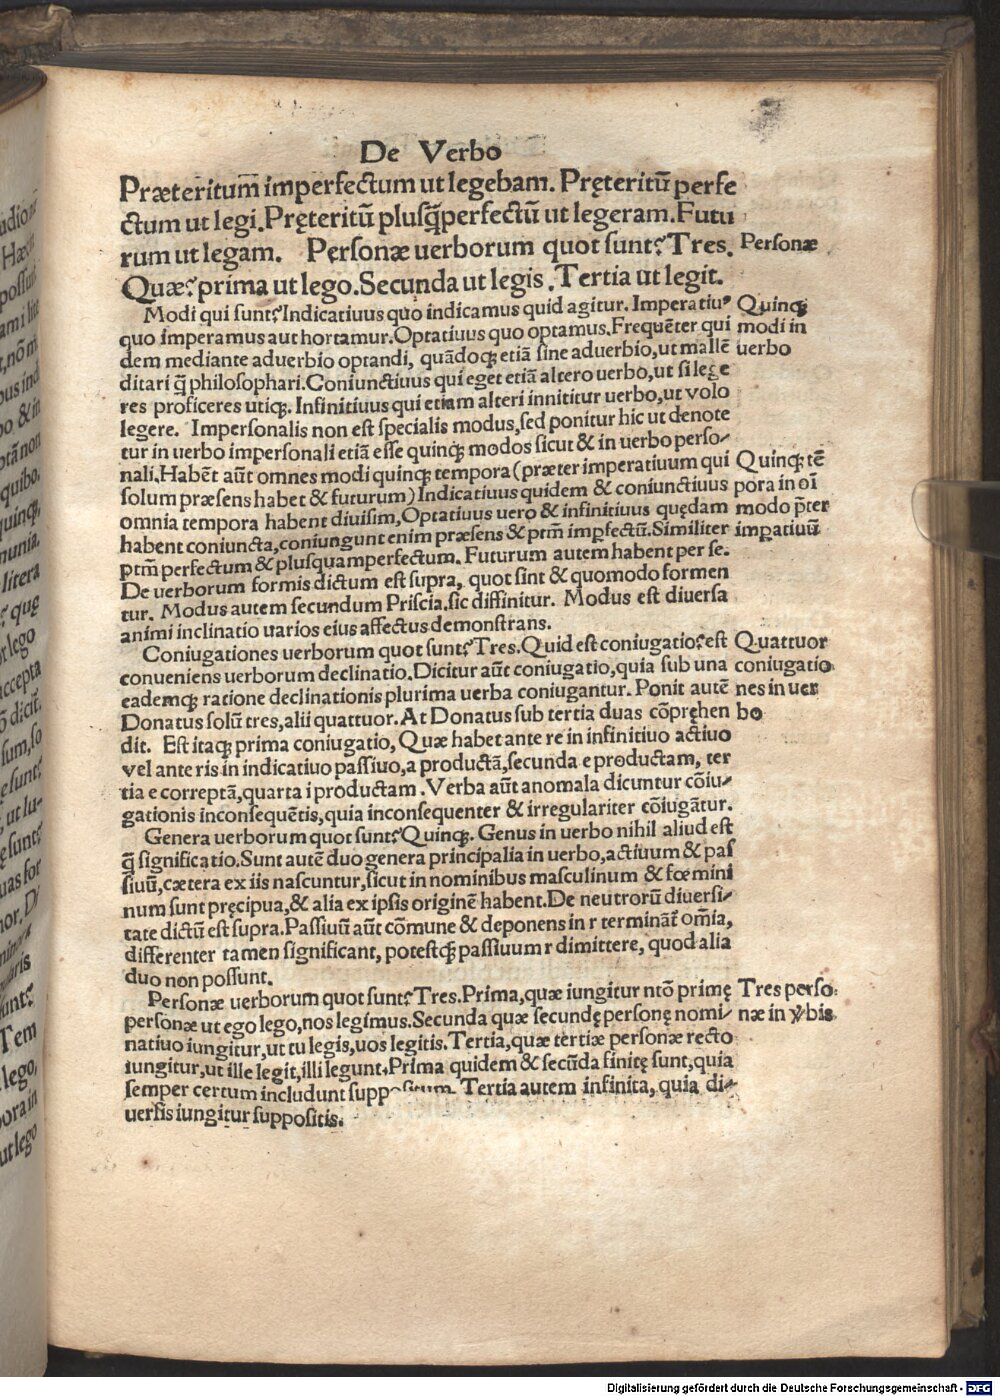 De Verbo
Præteritum̄ imperfectum ut legebam. Pręteritū perfe
ctum ut legi. Pręteritū plusq̄perfectū ut legeram. Futu
rum ut legam. Personæ uerborum quot sunt? Tres.
Personæ
Quæ? prima ut lego. Secunda ut legis. Tertia ut legit.
Modi qui sunt? Indicatiuus quo indicamus quid agitur. Imperatiuꝰ
quo imperamus aut hortamur. Optatiuus quo optamus. Frequēter qui
dem mediante aduerbio optandi, quādoqꝫ etiā sine aduerbio, ut mallē
ditari q̄ philosophari. Coniunctiuus qui eget etiā altero uerbo, ut si lege
res proficeres utiqꝫ. Infinitiuus qui etiam alteri innititur uerbo, ut volo
legere. Impersonalis non est specialis modus, sed ponitur hic ut denote
tur in uerbo impersonali etiā esse quinqꝫ modos sicut & in uerbo perso⸗
nali. Habēt aūt omnes modi quinqꝫ tempora (præter imperatiuum qui
solum præsens habet & futurum) Indicatiuus quidem & coniunctiuus
omnia tempora habent diuisim, Optatiuus uero & infinitiuus quędam
habent coniuncta, coniungunt enim præsens & ptm̄ imꝑfectū. Similiter
ptm̄ perfectum & plusquamperfectum. Futurum autem habent per se.
De uerborum formis dictum est supra, quot sint & quomodo formen
tur. Modus autem secundum Priscia. sic diffinitur. Modus est diuersa
animi inclinatio uarios eius affectus demonstrans.
Quinqꝫ
modi in
uerbo
Quinqꝫ tē
pora in oī
modo p̄ter
imꝑatiuū
Coniugationes uerborum quot sunt? Tres. Quid est coniugatio? est
conueniens uerborum declinatio. Dicitur aūt coniugatio, quia sub una
eademqꝫ ratione declinationis plurima uerba coniugantur. Ponit autē
Donatus solū tres, alii quattuor. At Donatus sub tertia duas cōpręhen
dit. Est itaqꝫ prima coniugatio, Quæ habet ante re in infinitiuo actiuo
vel ante ris in indicatiuo passiuo, a productā, secunda e productam, ter
tia e correptā, quarta i productam. Verba aūt anomala dicuntur cōiu⸗
gationis inconsequētis, quia inconsequenter & irregulariter cōiugātur.
Quattuor
coniugatio
nes in uer
bo
Genera uerborum quot sunt? Quinqꝫ. Genus in uerbo nihil aliud est
q̄ significatio. Sunt autē duo genera principalia in uerbo, actiuum & pas
siuū, cætera ex iis nascuntur, sicut in nominibus masculinum & fœmini
num sunt pręcipua, & alia ex ipsis originē habent. De neutrorū diuersi⸗
tate dictū est supra. Passiuū aūt cōmune & deponens in r termināt̄ om̄ia,
differenter tamen significant, potestqꝫ passiuum r dimittere, quod alia
duo non possunt.
Personæ uerborum quot sunt? Tres. Prima, quæ iungitur ntō primę
personæ ut ego lego, nos legimus. Secunda quæ secundę personę nomi⸗
natiuo iungitur, ut tu legis, uos legitis. Tertia, quæ tertiæ personæ recto
iungitur, ut ille legit, illi legunt. Prima quidem & secūda finitę sunt, quia
semper certum includunt suppositum. Tertia autem infinita, quia di⸗
uersis iungitur suppositis.
Tres perso
næ in ꝟbis
Digitalisierung gefördert durch die Deutsche Forschungsgemeinschaft - DFG